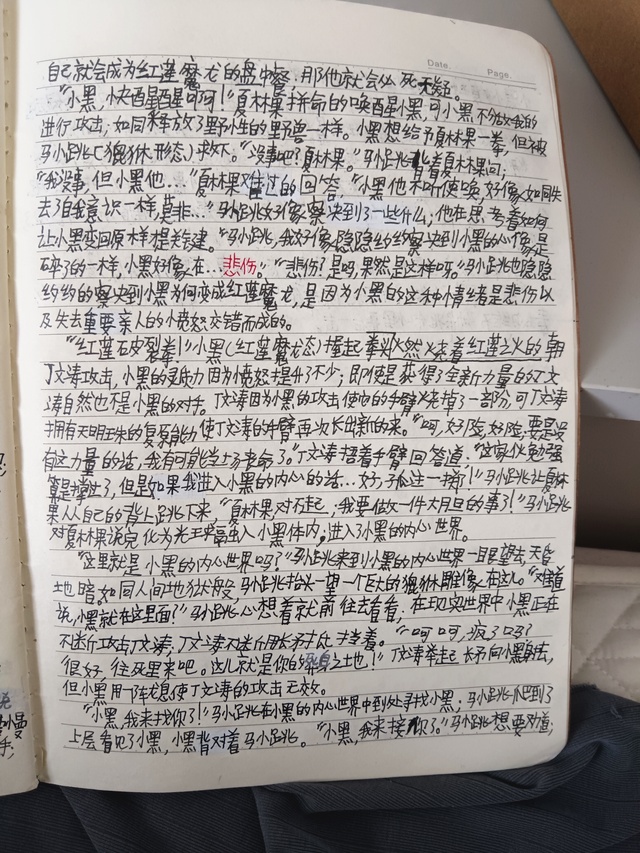 Date.
Page.
自己就会成为红莲魔龙的盘中餐，那他就会必死无疑。
"小黑，快酉星醒可可！"夏林果拼命的唤醒小黑，可小黑不
进行攻击，如同释放了野性的野兽一样。小黑想给予夏林果一拳，但被
马小跳(貔貅形态)救下。"没事吧？夏林果。"马小跳背着夏林果问，
"我没事，但小黑他…"夏林果难过的回答。"小黑他不听使唤，好像如同失
去了自我意识一样，莫非…"马小跳好像察决到了一些什么；他在思考着如何
让小黑变回原样是关键。"马小跳，我好像隐隐约约察决到小黑的心像是
碎了的一样，小黑好像在…悲伤。""悲伤？是吗，果然是这样呀。"马小跳也隐隐
约约的察决到小黑为何变成红莲魔龙，是因为小黑的这种情绪是悲伤以
及失去重要亲人的愤怒交错而成的。
"红莲石皮裂拳！"小黑(红莲魔龙态)握起拳头然火夹着红莲之火的朝
丁文涛攻击，小黑的灵质力因为愤怒提升了不少；即使是获得了全新力量的丁文
涛自然也不是小黑的对手。丁文涛因为小黑的攻击使他的手臂火尧掉了一部分，可丁文涛
拥有天明珠的复原能力使丁文涛的手臂再次长出新的来。"呵，好险，好险，要是没
有这力量的话，我有可能当场丧命了。"丁文涛捂着手臂回答道，"这家伙勉强
算是撞上了，但是如果我进入小黑的内心的话…好，孤注一掷！"马小跳让夏林
果从自己的背上跳下来。"夏林果对不起，我要做一件大胆的事了！"马小跳
对夏林果说完化为光芒进入小黑体内；进入了小黑的内心世界。
"这里就是小黑的内心世界吗？"马小跳来到小黑的内心世界一目望去，天昏
地暗。如同人间地狱般，马小跳抬头一望一个巨大的貔貅雕像在这儿。
说，小黑就在这里面？"马小跳心想着就前往去看看，在现实世界中小黑正在
不断攻击丁文涛，丁文涛不断用长矛抵挡着。"呵呵，疯了吗？
很好，往死里来吧。这儿就是你的死身之地！"丁文涛举起长矛向小黑身去，
但小黑用一阵龙息使丁文涛的攻击无效。
"小黑，我来找你了！"马小跳在小黑的内心世界中到处寻找小黑；马小跳爬到了
上层看见了小黑，小黑背对着马小跳。"小黑，我来接你了。"马小跳想要对道；